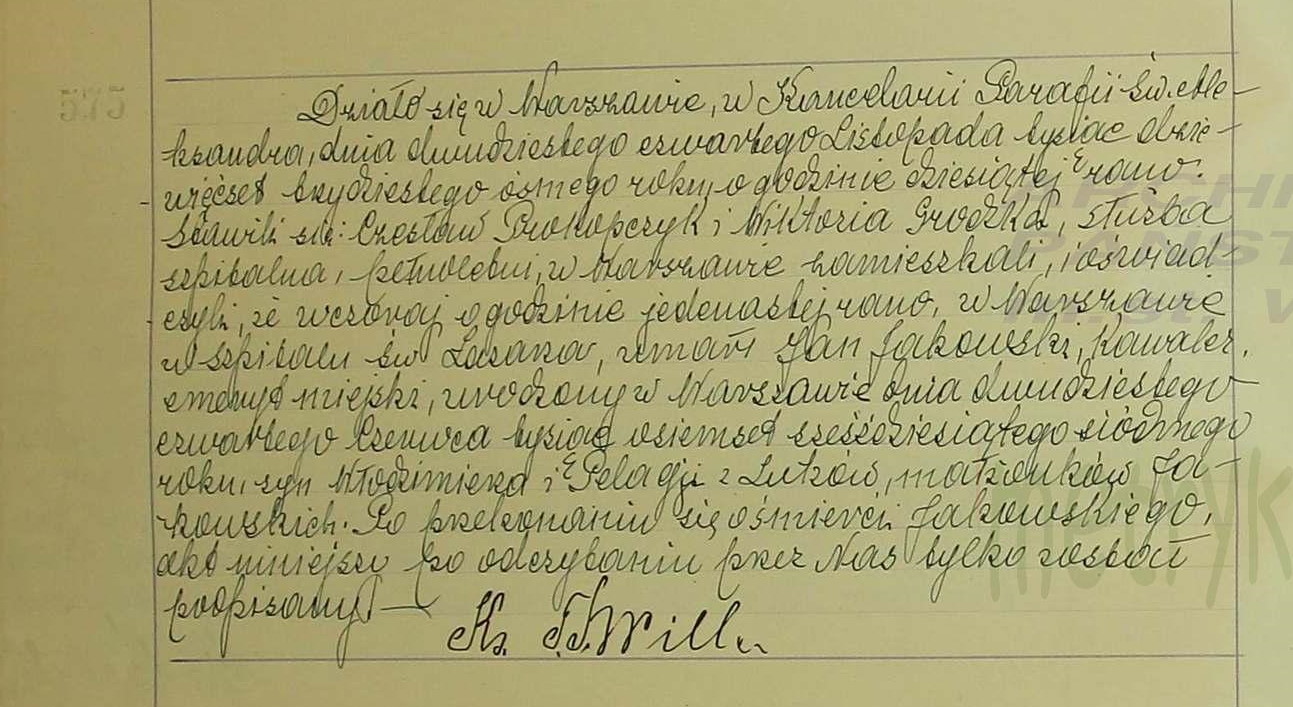 Działo się w Warszawie, w Kancelarii Parafii św. Ale-
ksandra, dnia dwudziestego czwartego Listopada tysiąc dzie-
więćset trzydziestego ósmego roku, o godzinie dziesiątej rano.
Stawili się: Czesław Prokopczyk i Wiktoria Grodzka, służba
szpitalna, pełnoletni, w Warszawie zamieszkali, i oświad-
czyli, że wczoraj o godzinie jedenastej rano, w Warszawie
w szpitalu św. Łazarza, zmarł Jan Jakowski, kawaler,
emeryt miejski, urodzony w Warszawie dnia dwudziestego
czwartego Czerwca tysiąc osiemset sześćdziesiątego siódmego
roku, syn Włodzimierza i Pelagji z Lutzów, małżonków Ja-
kowskich. Po przekonaniu się o śmierci Jakowskiego,
akt niniejszy po odczytaniu przez Nas tylko został
podpisany.—
Ks.
metryk